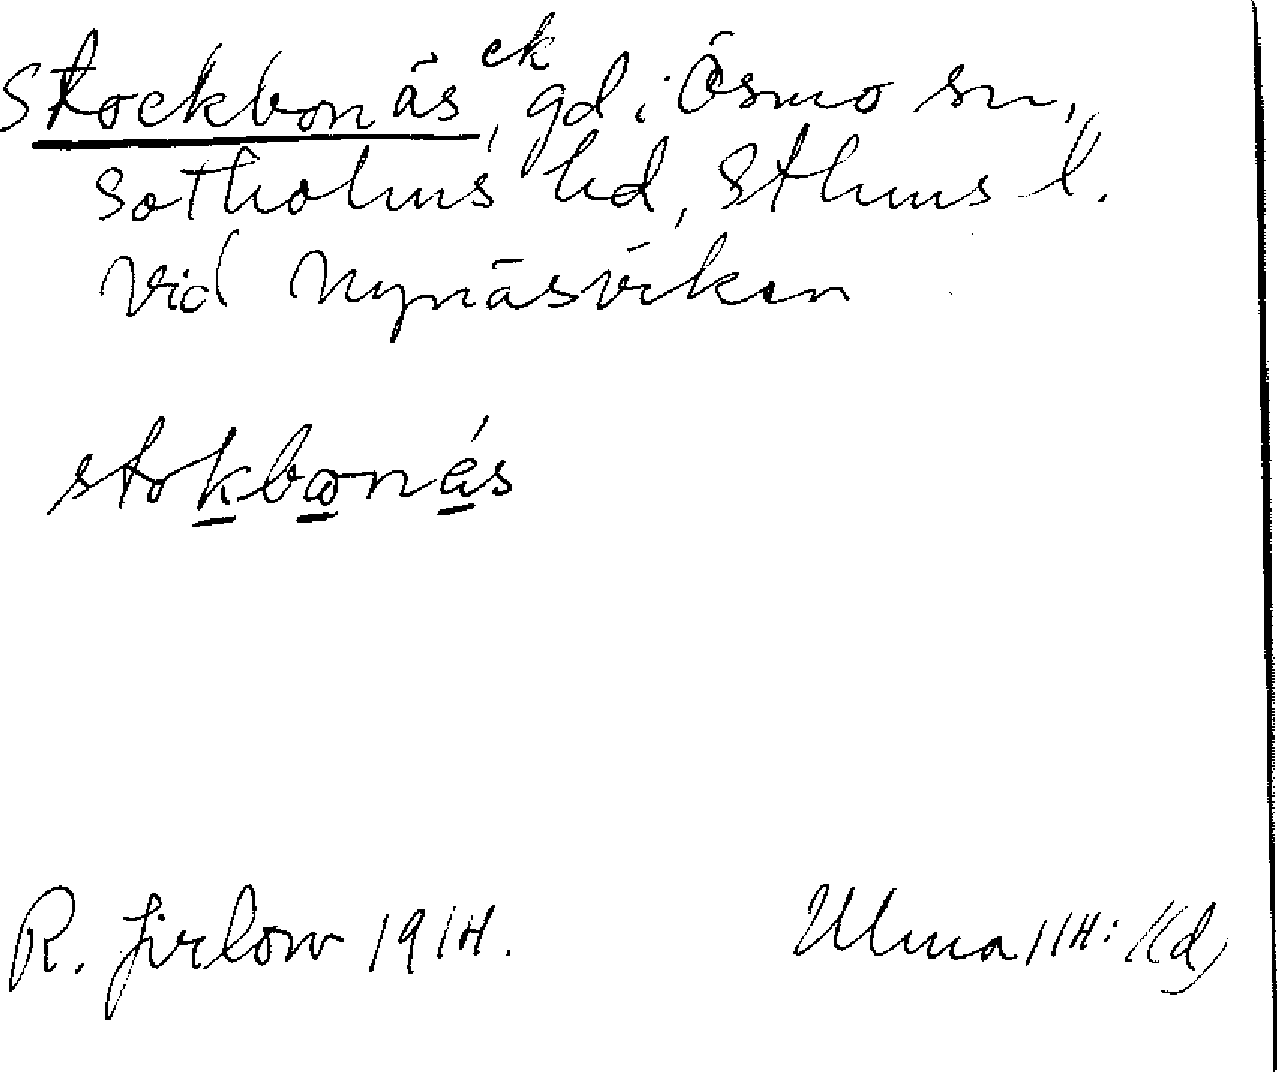 Stockbonäs, ek gd i Ösmo sn,
Sotholms hd, Sthms l.
vid Nynäsviken
stokbonäs
R. Jirlow 1914.
Ulma 114: